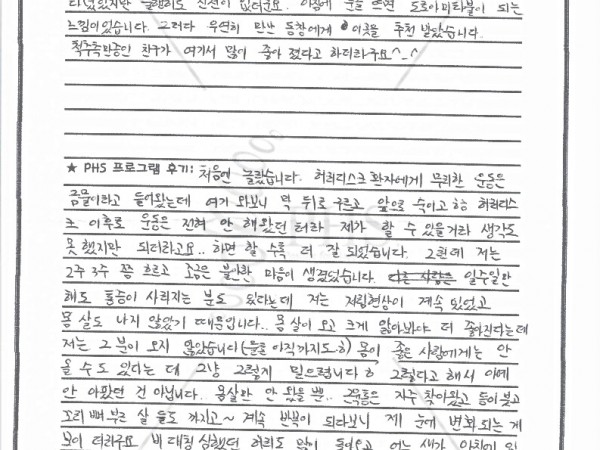 다녔었지만 별행히도 진전이 없더군요. 아침에 눈을 뜨면 도로아미타불이 되는
느낌이었습니다. 그러다 우연히 만난 동창에게 이곳을 추천 받았습니다.
척추측만증인 친구가 여기서 많이 좋아졌다고 하더라구요^_^
★ PHS 프로그램 후기: 처음엔 놀랐습니다. 허리디스크 환자에게 무리한 운동은
금물이라고 들어왔는데 여기 와보니 막 뒤로 구르고 앞으로 숙이고 ㅎㅎ 허리디스
크 이후로 운동은 전혀 안 해왔던 터라 제가 할 수 있을거라 생각도
못 했지만 되더라고요.. 하면 할 수록 더 잘 되었습니다. 그런데 저는
2주 3주 쯤 흐르고 조금은 불안한 마음이 생겼었습니다. 다른 사람은 일주일만
해도 통증이 사라지는 분도 있다는데 저는 저림현상이 계속 있었고
몸살도 나지 않았기 때문입니다.. 몸살이 오고 크게 앓아봐야 더 좋아진다는데
저는 그 분이 오지 않았습니다(물론 아직까지도ㅎ) 몸이 좋은 사람에게는 안
올 수도 있다는 데 그냥 그렇게 믿으렵니다ㅎ 그렇다고 해서 아예
안 아팠던 건 아닙니다. 몸살만 안 왔을 뿐.. 근육통은 자주 찾아왔고 등이 붓고
꼬리뼈 부근 살 들도 까지고~ 계속 반복이 되다보니 제 눈에 변화되는 게
보이더라구요 비대칭 심했던 허리도 많이 돌아오고 어느 새가 아침에